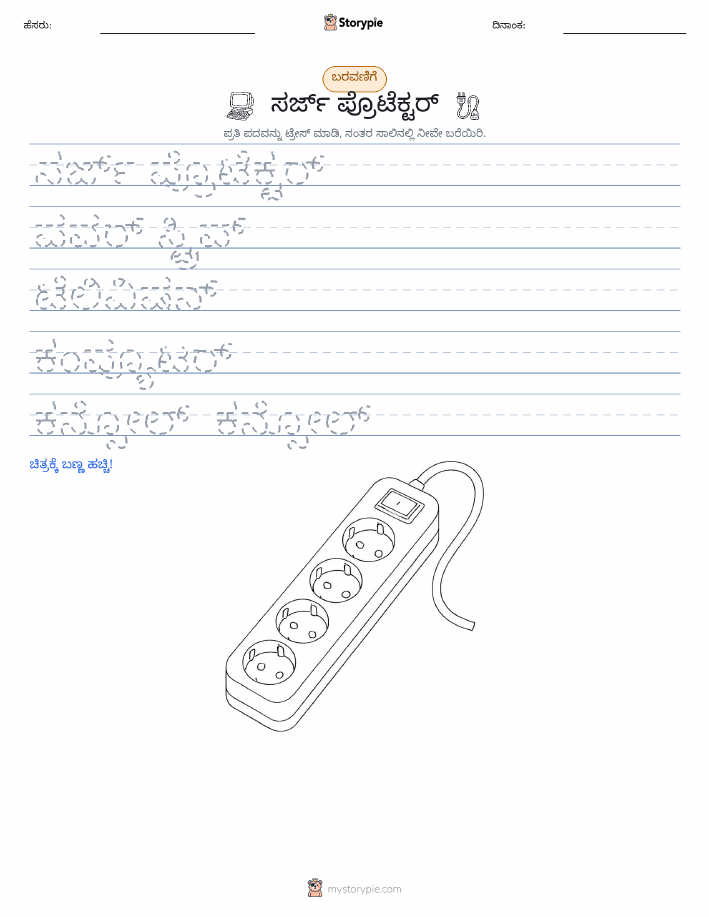 ಹೆಸರು:
Storypie
ದಿನಾಂಕ:
ಬರವಣಿಗೆ
ಸರ್ಜ್ ಪ್ರೊಟೆಕ್ಟರ್
ಪ್ರತಿ ಪದವನ್ನು ಟ್ರೇಸ್ ಮಾಡಿ, ನಂತರ ಸಾಲಿನಲ್ಲಿ ನೀವೇ ಬರೆಯಿರಿ.
ಸರ್ಜ್ ಪ್ರೊಟೆಕ್ಟರ್
ಪವರ್ ಸ್ಟ್ರಿಪ್
ಟೆಲಿವಿಷನ್
ಕಂಪ್ಯೂಟರ್
ಕನ್ಸೋಲ್ ಕನ್ಸೋಲ್
ಚಿತ್ರಕ್ಕೆ ಬಣ್ಣ ಹಚ್ಚಿ!
mystorypie.com